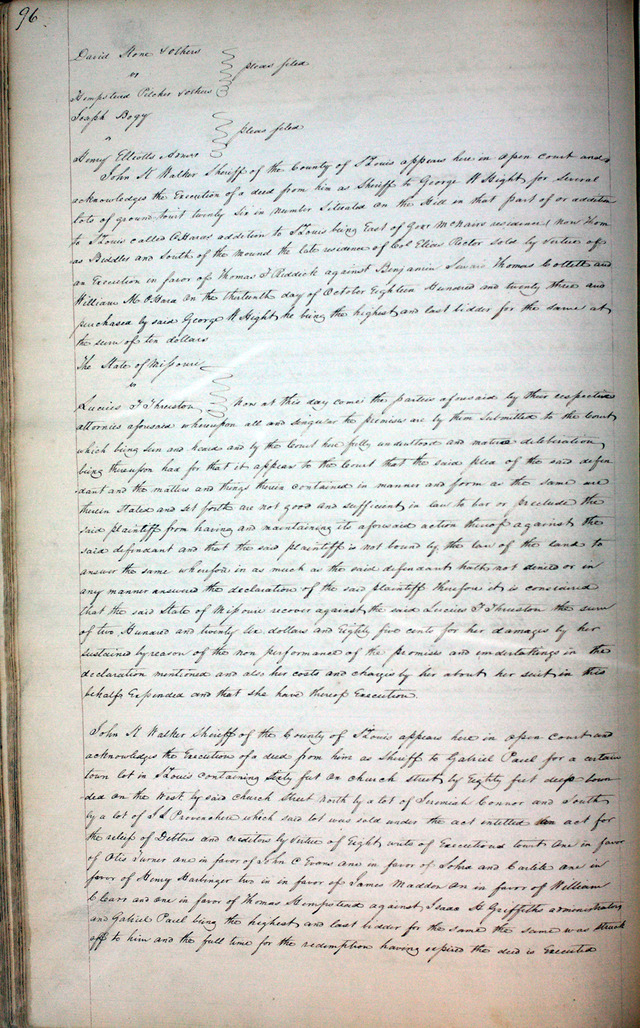 96.
David Stone & others
vs
pleas filed
Hempstead Pilcher & others
Joseph Bogy
vs
pleas filed
Henry Elliotts Admrs
John K Walker Sheriff of the County of St Louis appears here in open court and
acknowledges the Execution of a deed from him as Sheriff to George W Hight for Several
lots of ground towit twenty Six in number Situated on the Hill in that part of or addition
to St Louis called OHaras addition to St Louis being East of Govr McNairs residence now Thom
as Biddles and South of the Mound the late residence of Col Elias Rector Sold by virtue of
an Execution in favor of Thomas F Riddick against Benjamin Thomas and
William M OHara on the thirteenth day of October Eighteen Hundred and twenty three and
purchased by said George W Hight he being the highest and last bidder for the same at
the sum of ten dollars
The State of Missouri
vs
Lucius F Thruston Now at this day come the parties aforesaid by their respective
attornies aforesaid whereupon all and singular the premises are by them Submitted to the Court
which being seen and heard and by the Court here fully understood and mature deliberation
being thereupon had for that it appears to the Court that the said plea of the said defen
dant and the matters and things therein contained in manner and form as the same are
therein Stated and Set forth are not good and sufficient in law to bar or preclude the
said plaintiff from having and maintaining its aforesaid action thereof against the
said defendant and that the said plaintiff is not bound by the law of the land to
answer the same wherefore in as much as the said defendant hath not denied or in
any manner answered the declaration of the said plaintiff therefore it is considered
that the said State of Missouri recover against the said Lucius F Thruston the sum
of two Hundred and twenty Six dollars and Eighty five cents for her damages by her
sustained by reason of the non performance of the promises and undertakings in the
declaration mentioned and also her costs and charges by her about her suit in this
behalf Expended and that she have thereof Execution
John K Walker Sheriff of the County of St Louis appears here in open Court and
acknowledges the Execution of a deed from him as Sheriff to Gabriel Paul for a certain
town lot in St Louis containing Sixty feet on church street by Eighty feet deep boun
ded on the West by said Church Street North by a lot of Jeremiah Connor and South
by a lot of J L Provenchere which said lot was sold under the act entitled an act for
the relief of Debtors and creditors by virtue of Eight writs of Execution towit one in favor
of Otis Turner one in favor of John C Evans one in favor of and one in
favor of Henry two in in favor of James Maddox on in favor of William
Clears and one in favor of Thomas Hempstead against Isaac H Griffiths administrators
and Gabriel Paul being the highest and last bidder for the same the same was struck
off to him and the full time for the redemption having expired the deed is Executed